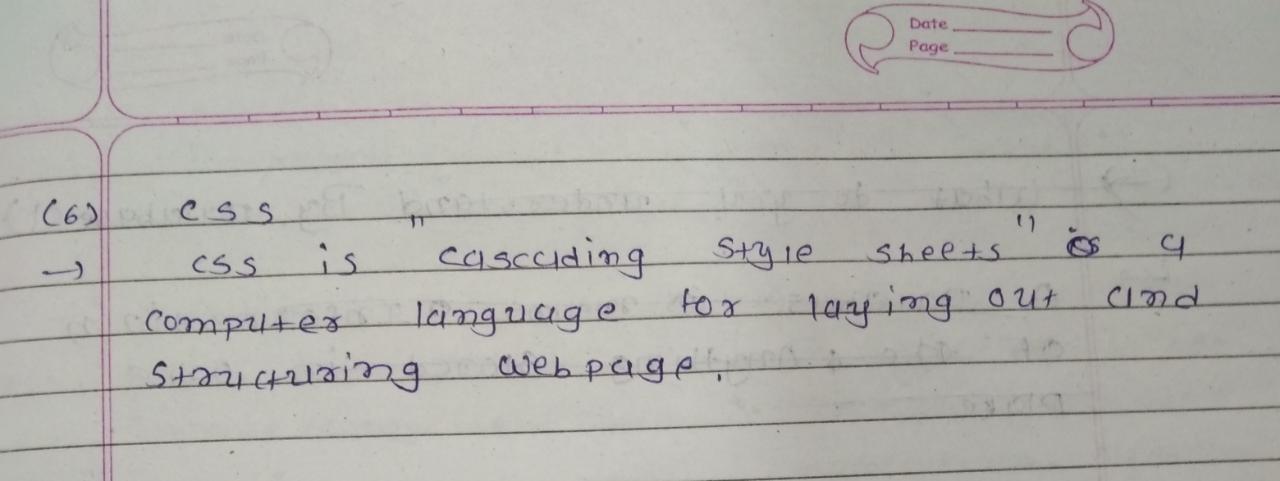 Date
Page
(6) CSS
→ CSS is "cascading style sheets" is a
computer language for laying out and
structuring webpage.